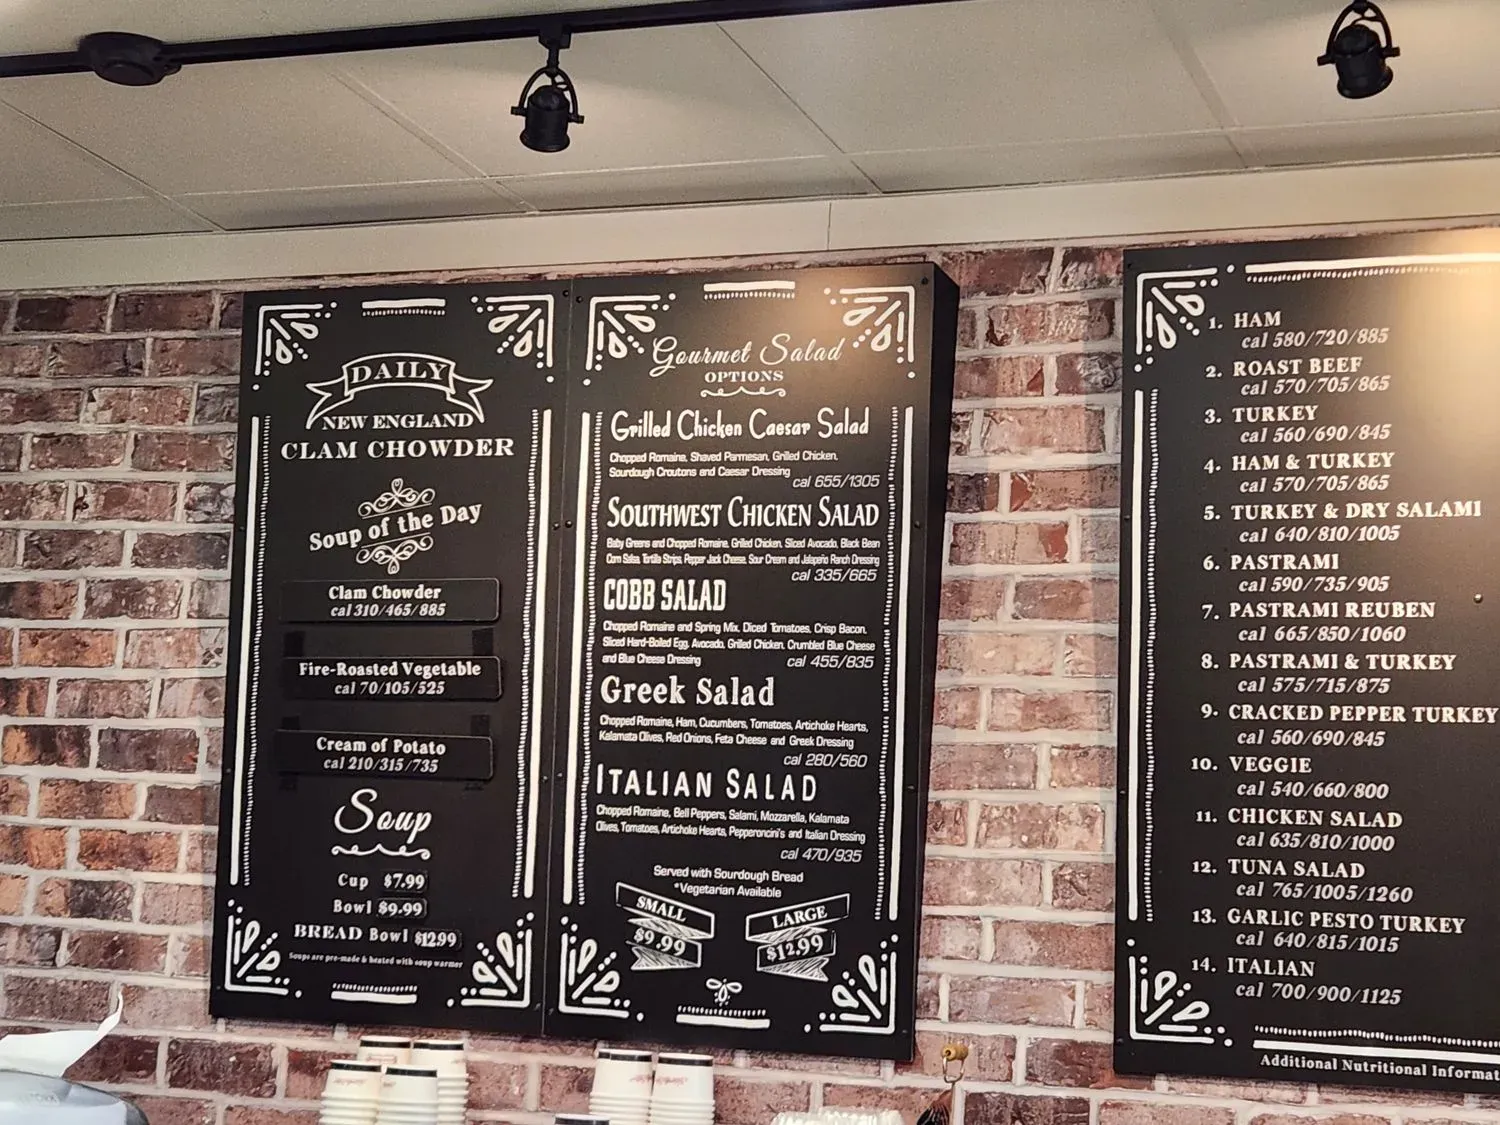 DAILY
NEW ENGLAND
CLAM CHOWDER
Soup of the Day
Clam Chowder
cal 310/465/885
Fire-Roasted Vegetable
cal 70/105/525
Cream of Potato
cal 210/315/735
Soup
Cup $7.99
Bowl $9.99
BREAD Bowl $12.99
Soups are pre-made & heated with soup warmer
Gourmet Salad
OPTIONS
Grilled Chicken Caesar Salad
Chopped Romaine, Shaved Parmesan, Grilled Chicken,
Sourdough Croutons and Caesar Dressing
cal 655/1305
SOUTHWEST CHICKEN SALAD
Baby Greens and Chopped Romaine, Grilled Chicken, Sliced Avocado, Black Bean
Corn Salsa, Tortilla Strips, Pepper Jack Cheese, Sour Cream and Jalapeño Ranch Dressing
cal 335/665
COBB SALAD
Chopped Romaine and Spring Mix, Diced Tomatoes, Crisp Bacon,
Sliced Hard-Boiled Egg, Avocado, Grilled Chicken, Crumbled Blue Cheese
and Blue Cheese Dressing
cal 455/835
Greek Salad
Chopped Romaine, Ham, Cucumbers, Tomatoes, Artichoke Hearts,
Kalamata Olives, Red Onions, Feta Cheese and Greek Dressing
cal 280/560
ITALIAN SALAD
Chopped Romaine, Bell Peppers, Salami, Mozzarella, Kalamata
Olives, Tomatoes, Artichoke Hearts, Pepperoncini's and Italian Dressing
cal 470/935
Served with Sourdough Bread
*Vegetarian Available
SMALL
$9.99
LARGE
$12.99
1. HAM
cal 580/720/885
2. ROAST BEEF
cal 570/705/865
3. TURKEY
cal 560/690/845
4. HAM & TURKEY
cal 570/705/865
5. TURKEY & DRY SALAMI
cal 640/810/1005
6. PASTRAMI
cal 590/735/905
7. PASTRAMI REUBEN
cal 665/850/1060
8. PASTRAMI & TURKEY
cal 575/715/875
9. CRACKED PEPPER TURKEY
cal 560/690/845
10. VEGGIE
cal 540/660/800
11. CHICKEN SALAD
cal 635/810/1000
12. TUNA SALAD
cal 765/1005/1260
13. GARLIC PESTO TURKEY
cal 640/815/1015
14. ITALIAN
cal 700/900/1125
Additional Nutritional Informat